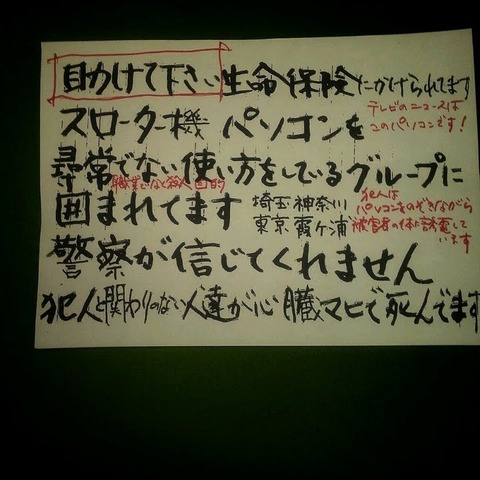 助けて下さい生命保険にかけられてます
テレビのニュースは
このパソコンです!
スローター機 パソコンを
尋常でない使い方をしているグループに
囲まれてます
埼玉 神奈川
東京 霞ヶ浦
犯人は
パソコンをのぞきながら
被害者の体に
います
警察が信じてくれません
犯人と関わりのない人達が心臓マヒで死んでます